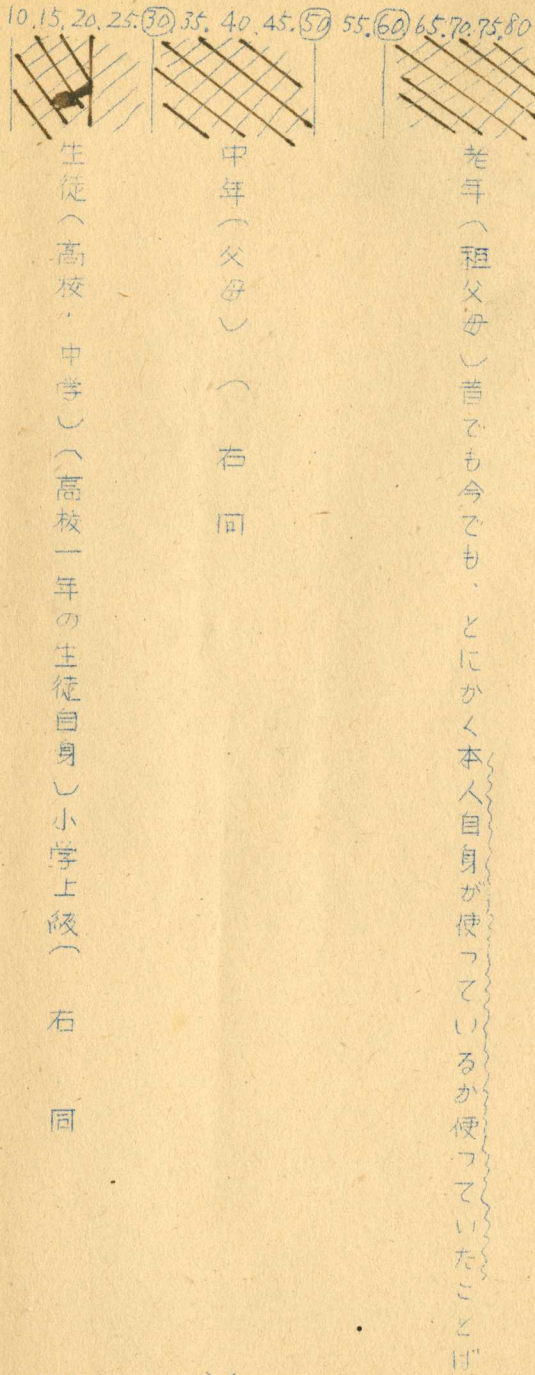 10.15.20.25.30 35. 40.45.50 55.60 65.70.75.80
老年（祖父母）昔でも今でも、とにかく本人自身が使っているか使っていたことば
中年（父母）（右同
生徒（高校、中学）（高校一年の生徒自身）小学上級（右同